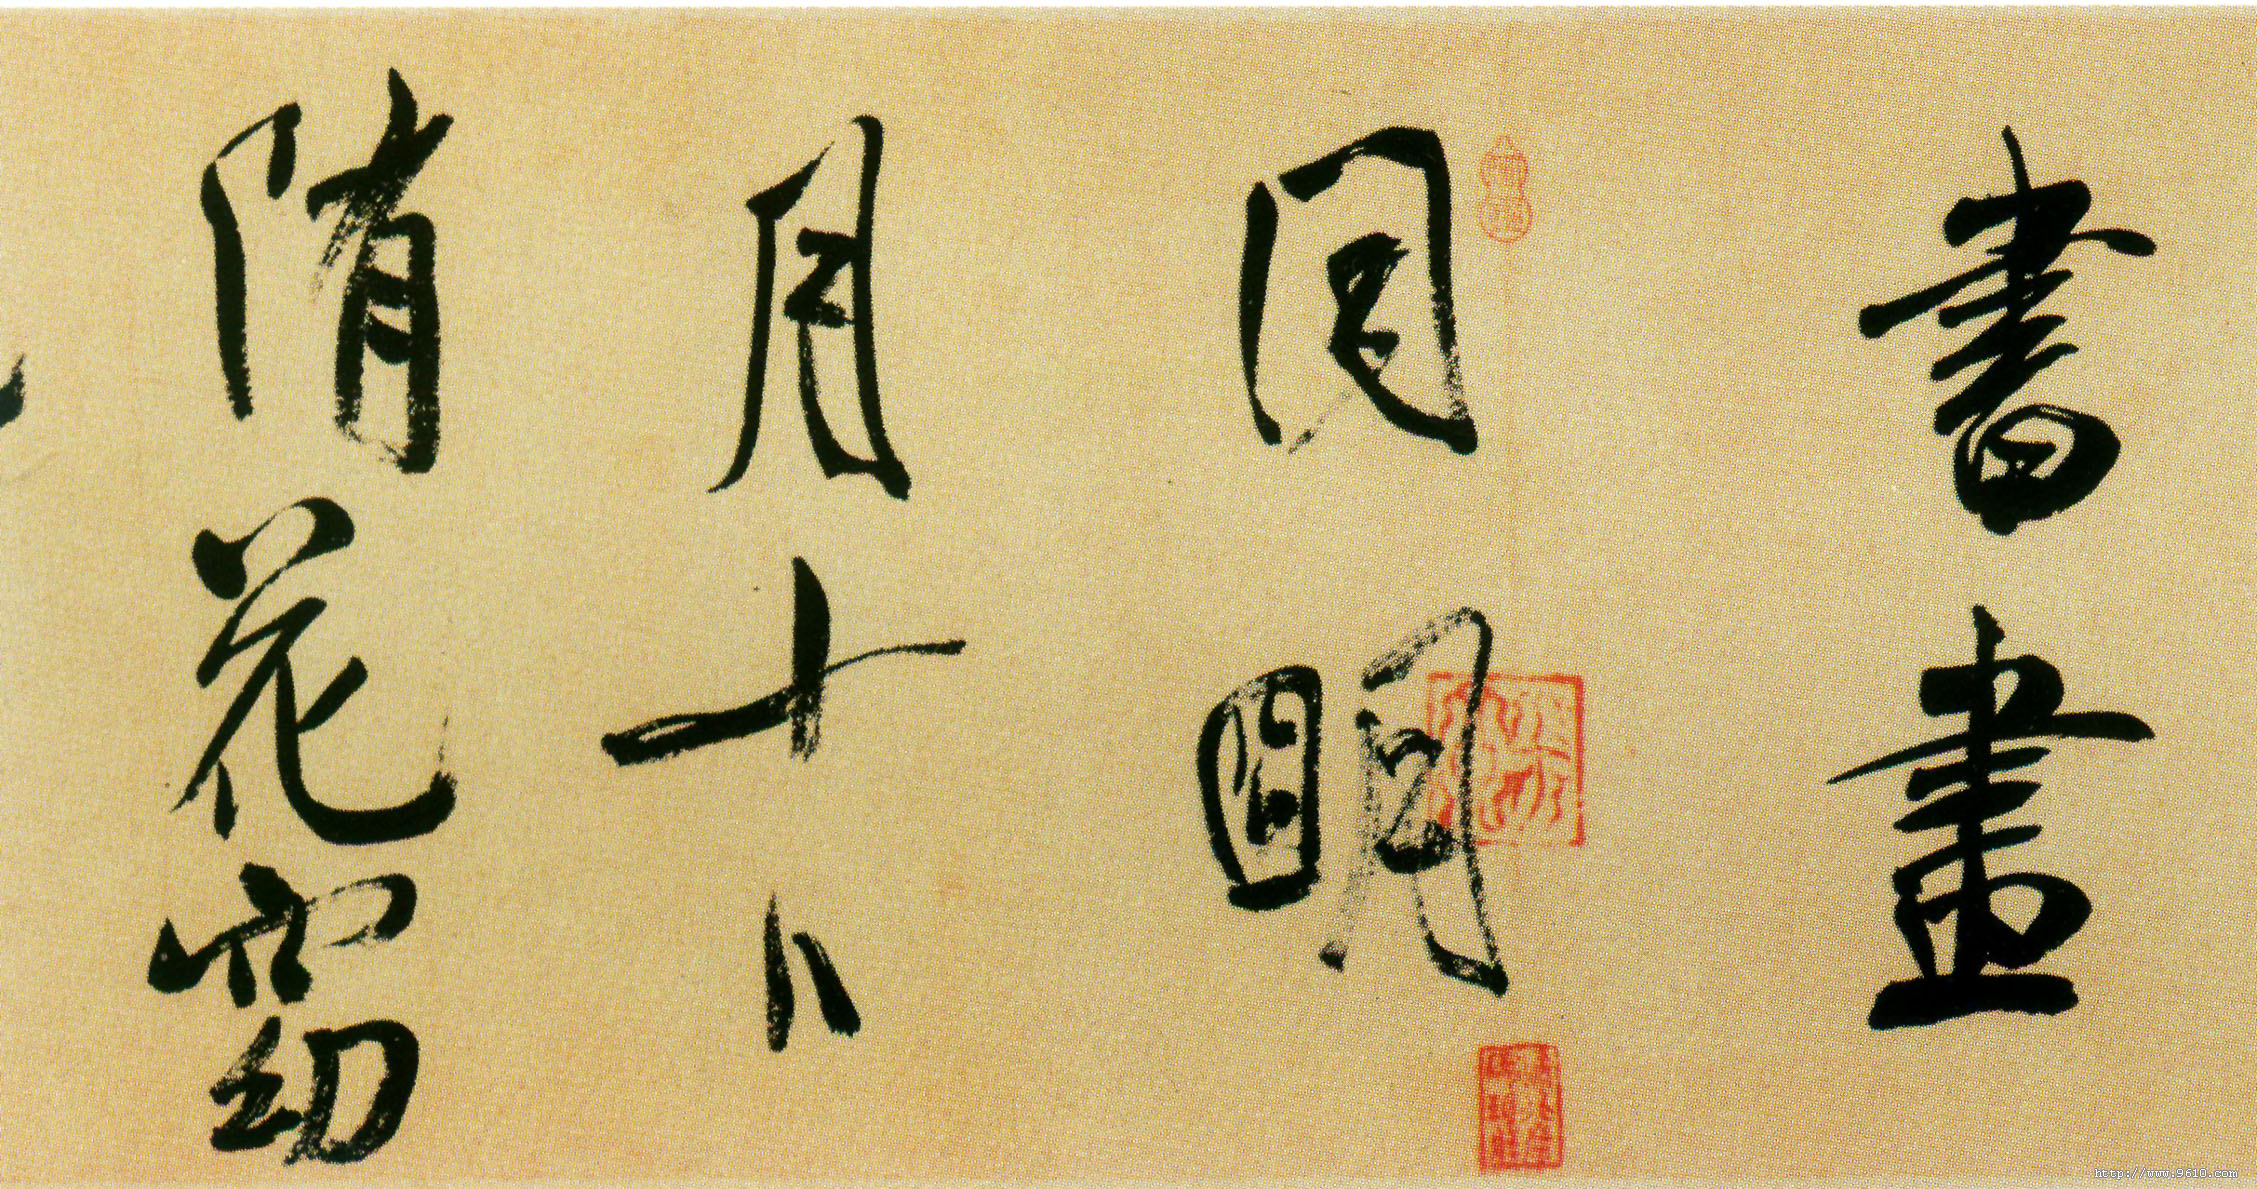 書畫
同明
月十日
隋花窈
http://www.9610.com